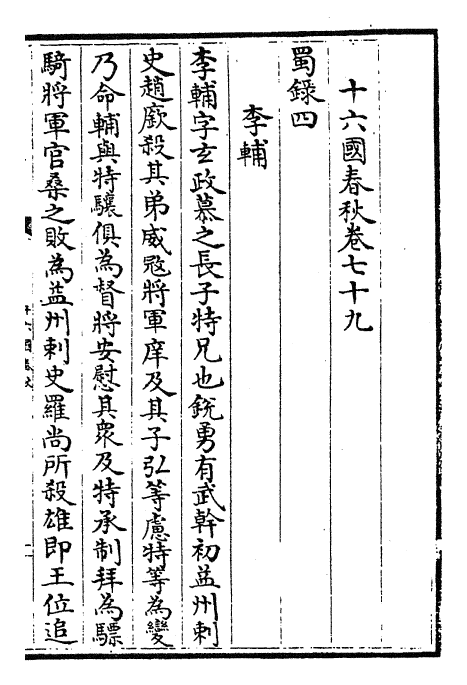 十六國春秋卷七十九
蜀錄四
李輔
李輔字玄政慕之長子特兄也銳勇有武幹初益州刺
史趙廞殺其弟威寇將軍庠及其子弘等慮特等為變
乃命輔與特驤俱為督將安慰其衆及特承制拜為驃
騎將軍官桑之敗為益州刺史羅尚所殺雄即王位追